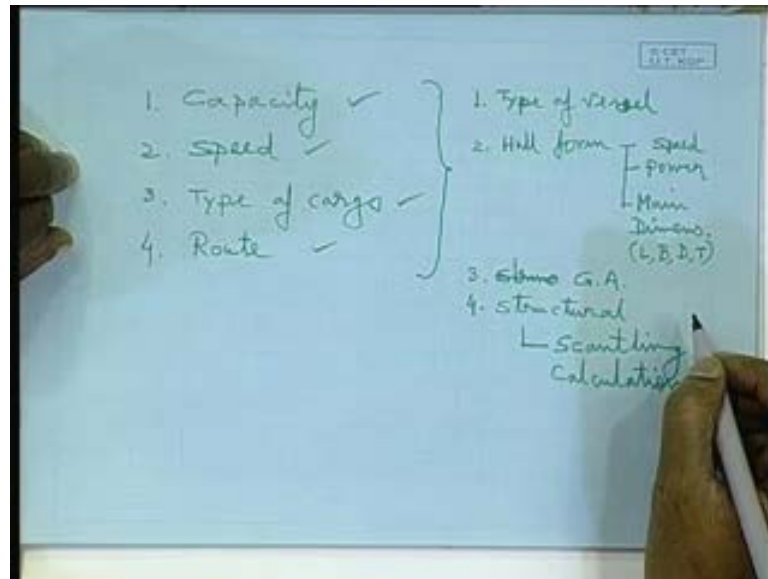 © CET
I.I.T. KGP
1. Capacity ✓
2. Speed ✓
3. Type of cargo ✓
4. Route ✓
1. Type of vessel
2. Hull form
speed
power
Main
Dimens.
(L, B, D, T)
3. G.A.
4. Structural
Scantling
Calculation